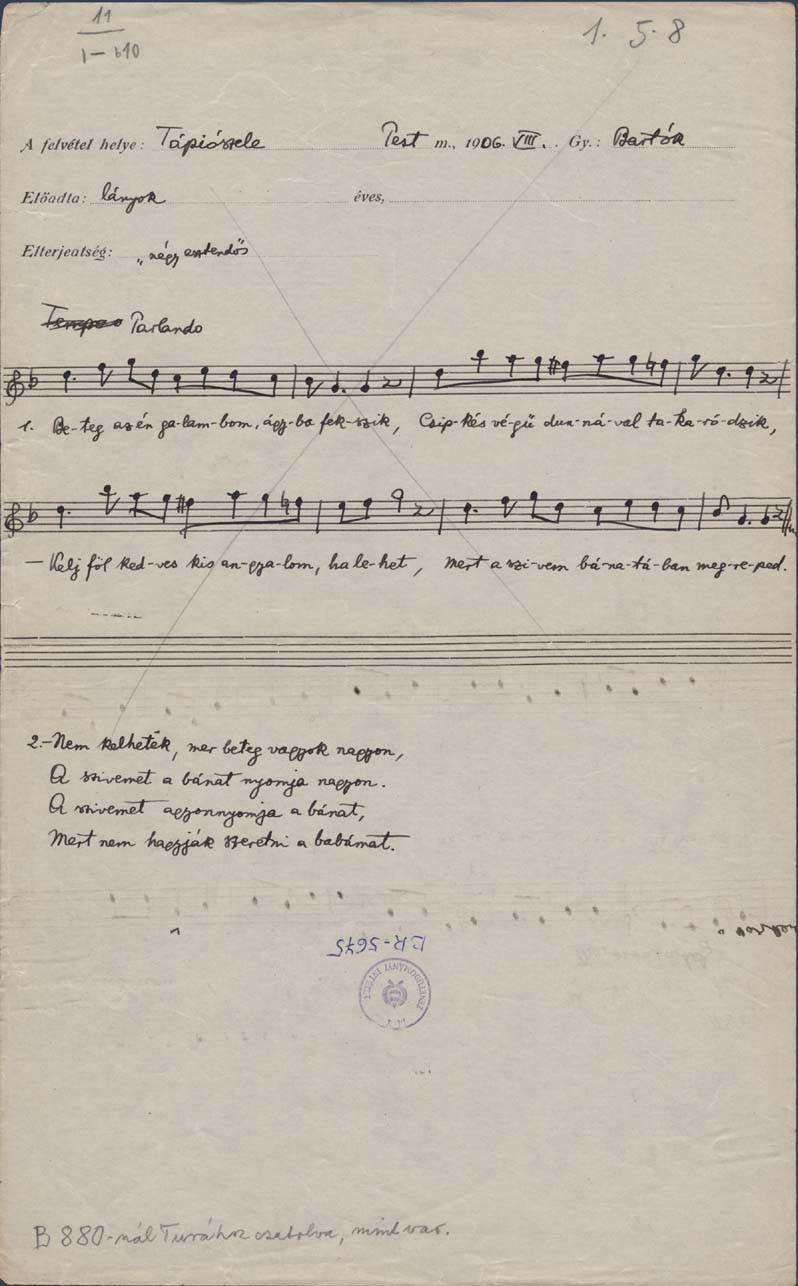 11
1. 5. 8
A felvétel helye: Tápiószele Pest m., 1906. VIII. Gy.: Bartók
Előadta: lányok éves,
Elterjedtség: „négy esztendős
Tempo Parlando
1. Be-teg az én ga-lam-bom, ágy-ba fek-szik, Csip-kés vé-gű dun-ná-val ta-ka-ró-dzik,
— Kelj föl ked-ves kis an-gya-lom, ha le-het, Mert a szi-vem bá-na-tá-ban meg-re-ped.
2.-Nem kelhetek, mer beteg vagyok nagyon,
A szivemet a bánat nyomja nagyon.
A szivemet agyonnyomja a bánat,
Mert nem hagyják szeretni a babámat.
BR-5675
ZENETUDOMÁNYI INTÉZET
B 880-nál Turához csatolva, mint var.